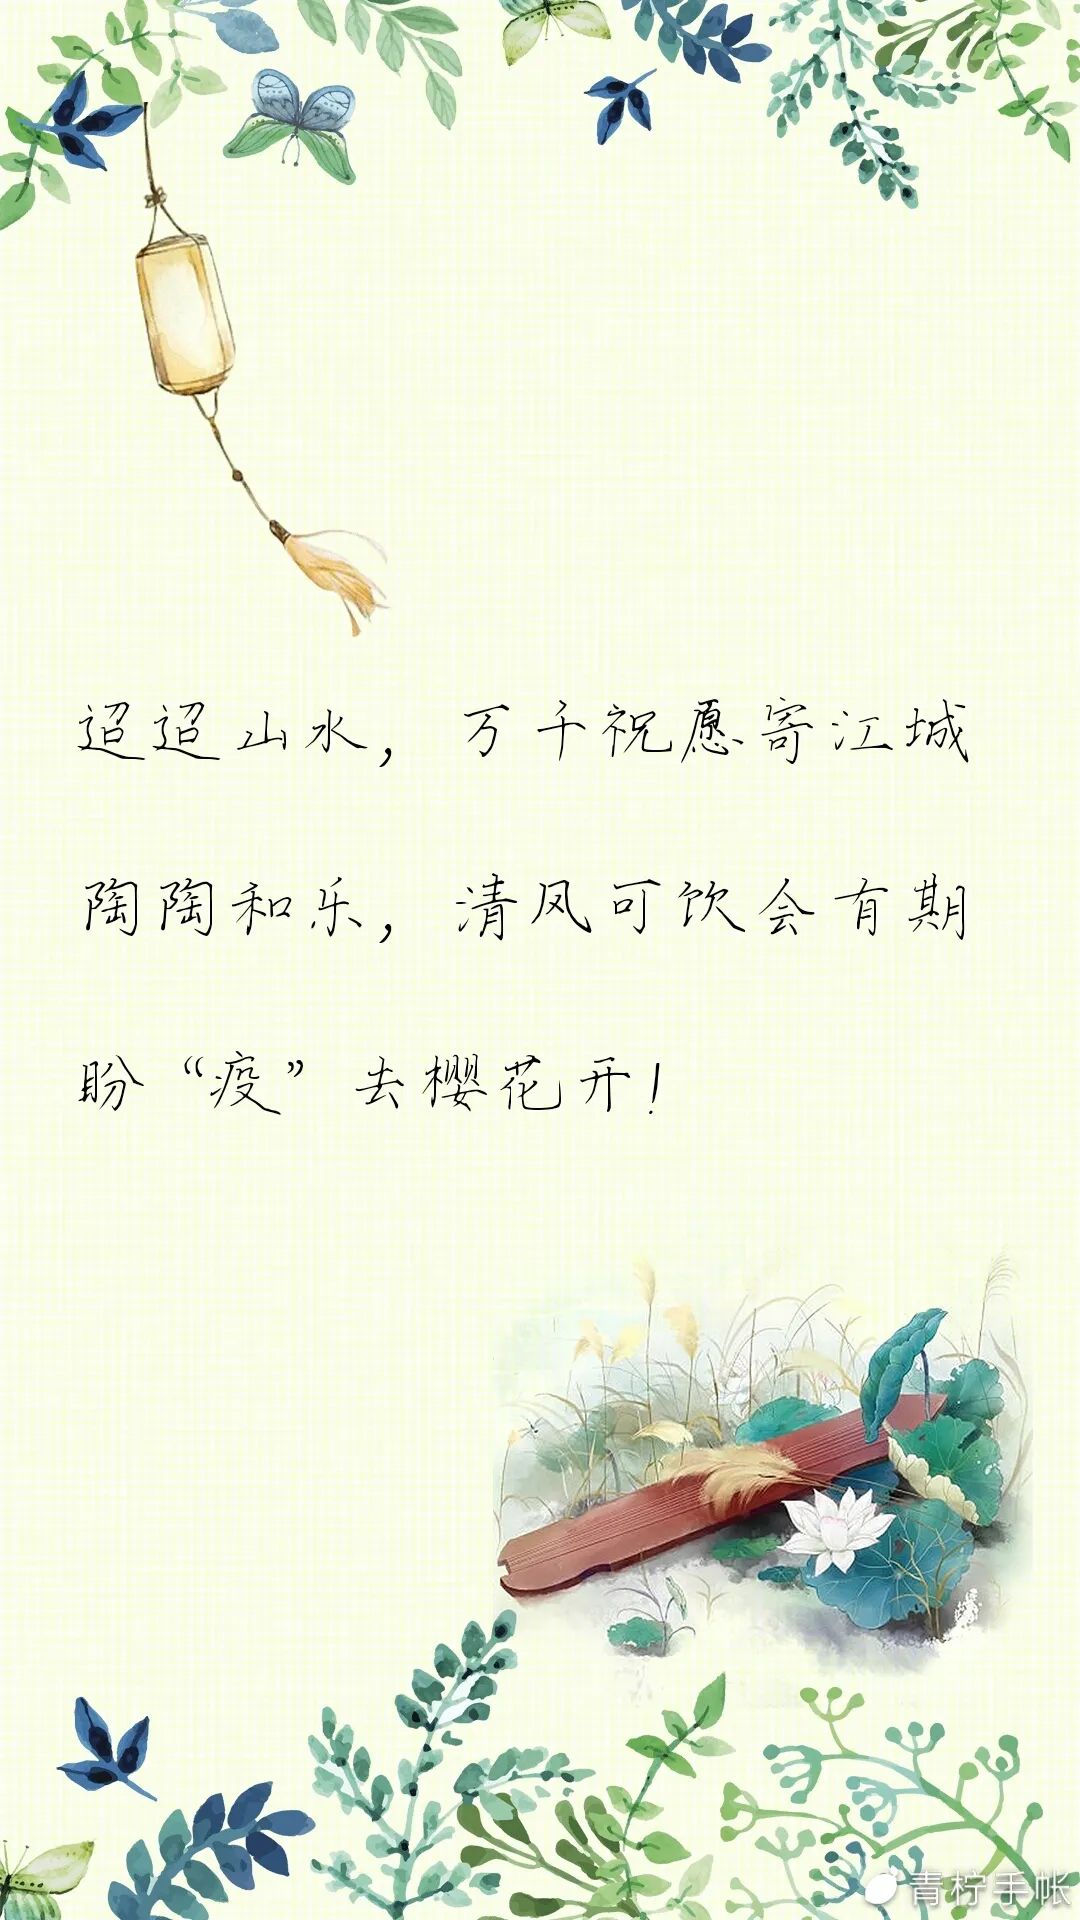 迢迢山水，万千祝愿寄江城
陶陶和乐，清风可饮会有期
盼“疫”去樱花开！
青柠手帐